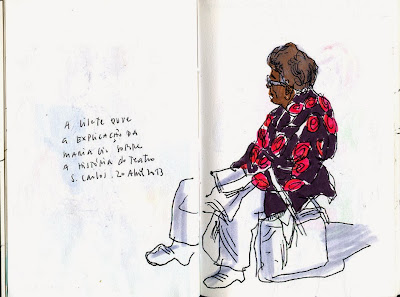 A Lisete ouve
a explicação da
Maria sobre
a História do Teatro
S. Carlos . 20 Abril 2013